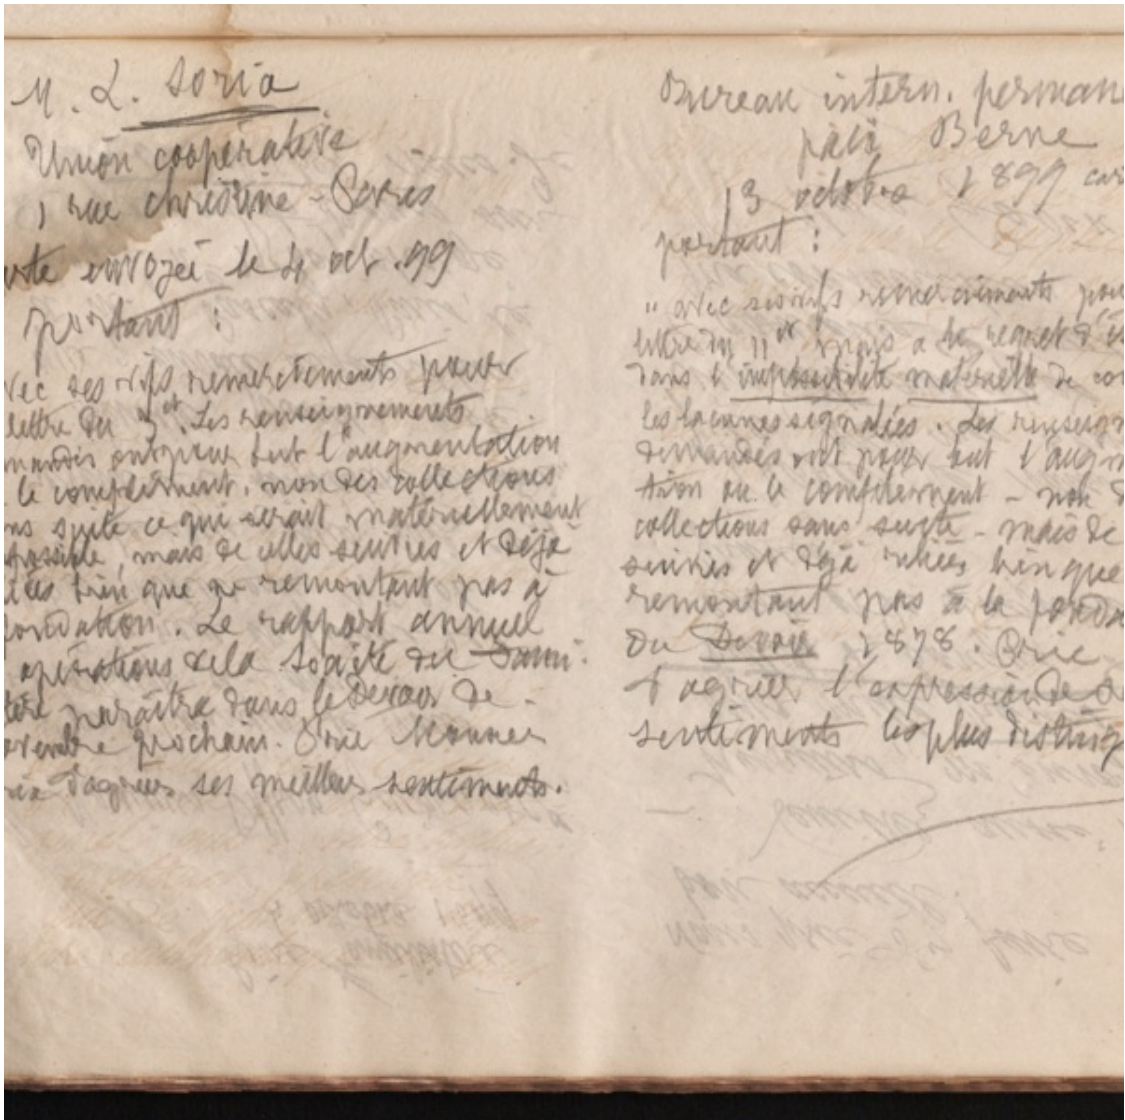 M. L. Soria
Union coopérative
1 rue Christine - Paris
arte envoyée le 4 oct. 99
portant :
vec ses vifs remerciements pour
lettre du 3 ct. Les renseignements
mandés ont pour but l'augmentation
le complément, non des collections
ns suite ce qui serait matériellement
possible, mais de celles suivies et déjà
iées bien que ne remontant pas à
fondation. Le rapport annuel
opérations de la Société du Fami.
tère paraîtra dans le Devoir de
ovembre prochain. Prie Monsieur
ria d'agréer ses meilleurs sentiments.
Bureau intern. permane
paix Berne
13 octobre 1899 car
portant :
" avec ses vifs remerciements pou
lettre du 11 ct mais a le regret d'ê
dans l'impossibilité matérielle de co
les lacunes signalées. Les renseign
demandés ont pour but l'augm
tion ou le complément - non d
collections sans suite - mais de
suivies et déjà reliées bien que
remontant pas à la fonda
du Devoir 1878. Prie
d'agréer l'expression de
sentiments les plus disting